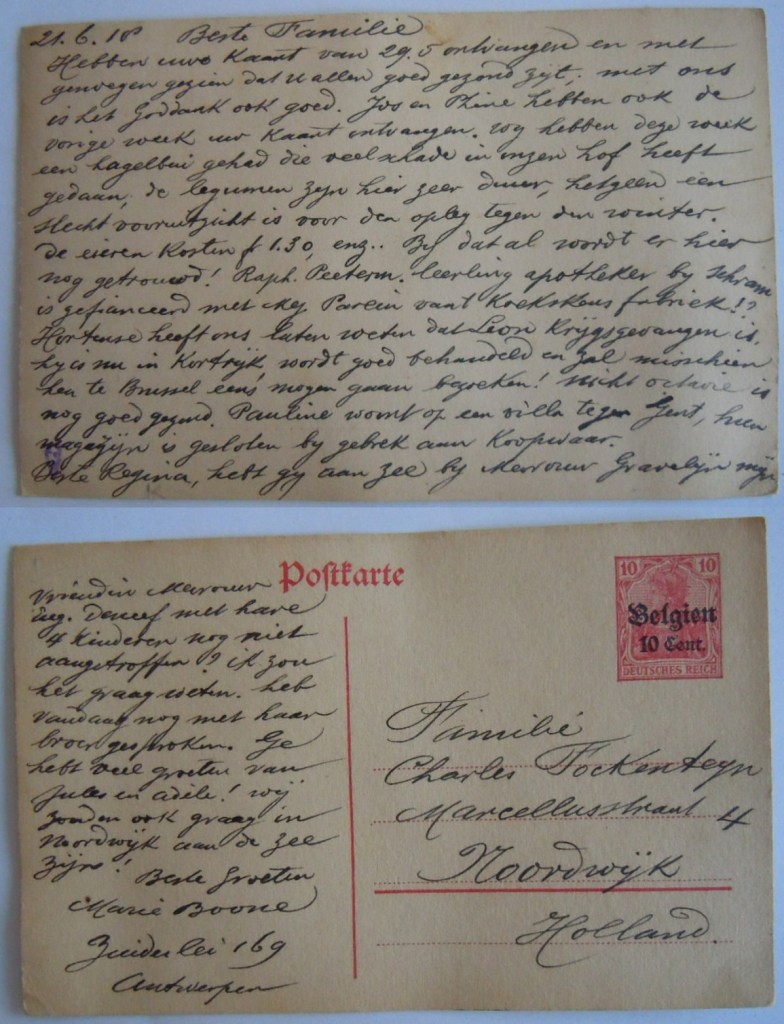 21.6.18 Beste Familie
Hebben uwe Kaart van 29.5 ontvangen en met
genoegen gezien dat U allen goed gezond zijt, met ons
is het Goddank ook goed. Jos en Phine hebben ook de
vorige week uw Kaart ontvangen. Wy hebben deze week
een hagelbui gehad die veel schade in onzen hof heeft
gedaan, de legumen zyn hier zeer duur, hetgeen een
slecht vooruitzicht is voor den opleg tegen den winter.
De eieren Kosten fr 1.30, enz.. By dat al wordt er hier
nog getrouwd! Raph. Peeterm. leerling apotheker by Schram
is gefianceerd met Mej Parein vant Koekskens fabriek!?
Hortense heeft ons laten weten dat Leon Krijgsgevangen is.
hy is nu in Kortrijk, wordt goed behandeld en zal misschien
hen te Brussel eens mogen gaan bezoeken! nicht octavie is
nog goed gezond. Pauline woont op een villa tegen Gent, hun
magazijn is gesloten by gebrek aan Koopwaar.
Beste Regina, hebt gy aan zee by Mevrouw Gravelijn mijn
vriendin Mevrouw
Eug. Deneef met hare
4 Kinderen nog niet
aangetroffen? ik zou
het graag weten. heb
vandaag nog met haar
broer gesproken. Ge
hebt veel groeten van
Jules en adèle! wij
zouden ook graag in
Noordwijk aan de zee
zijn!
Beste Groeten
Marie Boone
Zuiderlei 169
Antwerpen
Postkarte
10 10
Belgien
10 Cent.
DEUTSCHES REICH
Familie
Charles Fockenteyn
Marcellusstraat 4
Noordwijk
Holland.